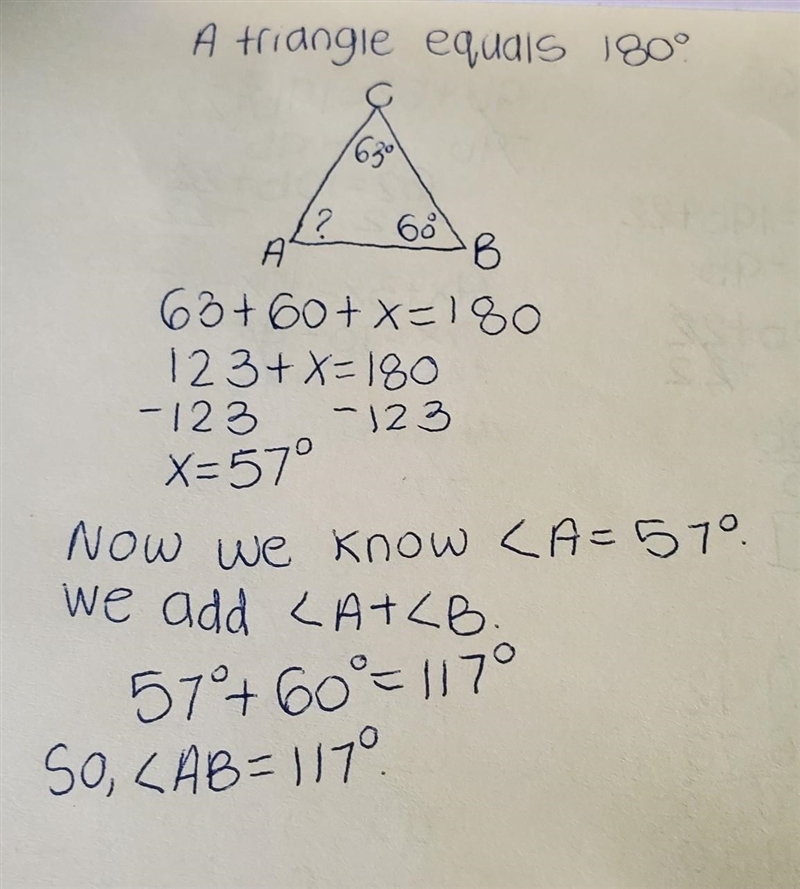 A triangle equals 180°
C
63°
? 60°
A B
63+60+x=180
123+x=180
-123 -123
x=57°
Now we know <A=57°.
We add <A+<B.
57°+60°=117°
So, <AB=117°.